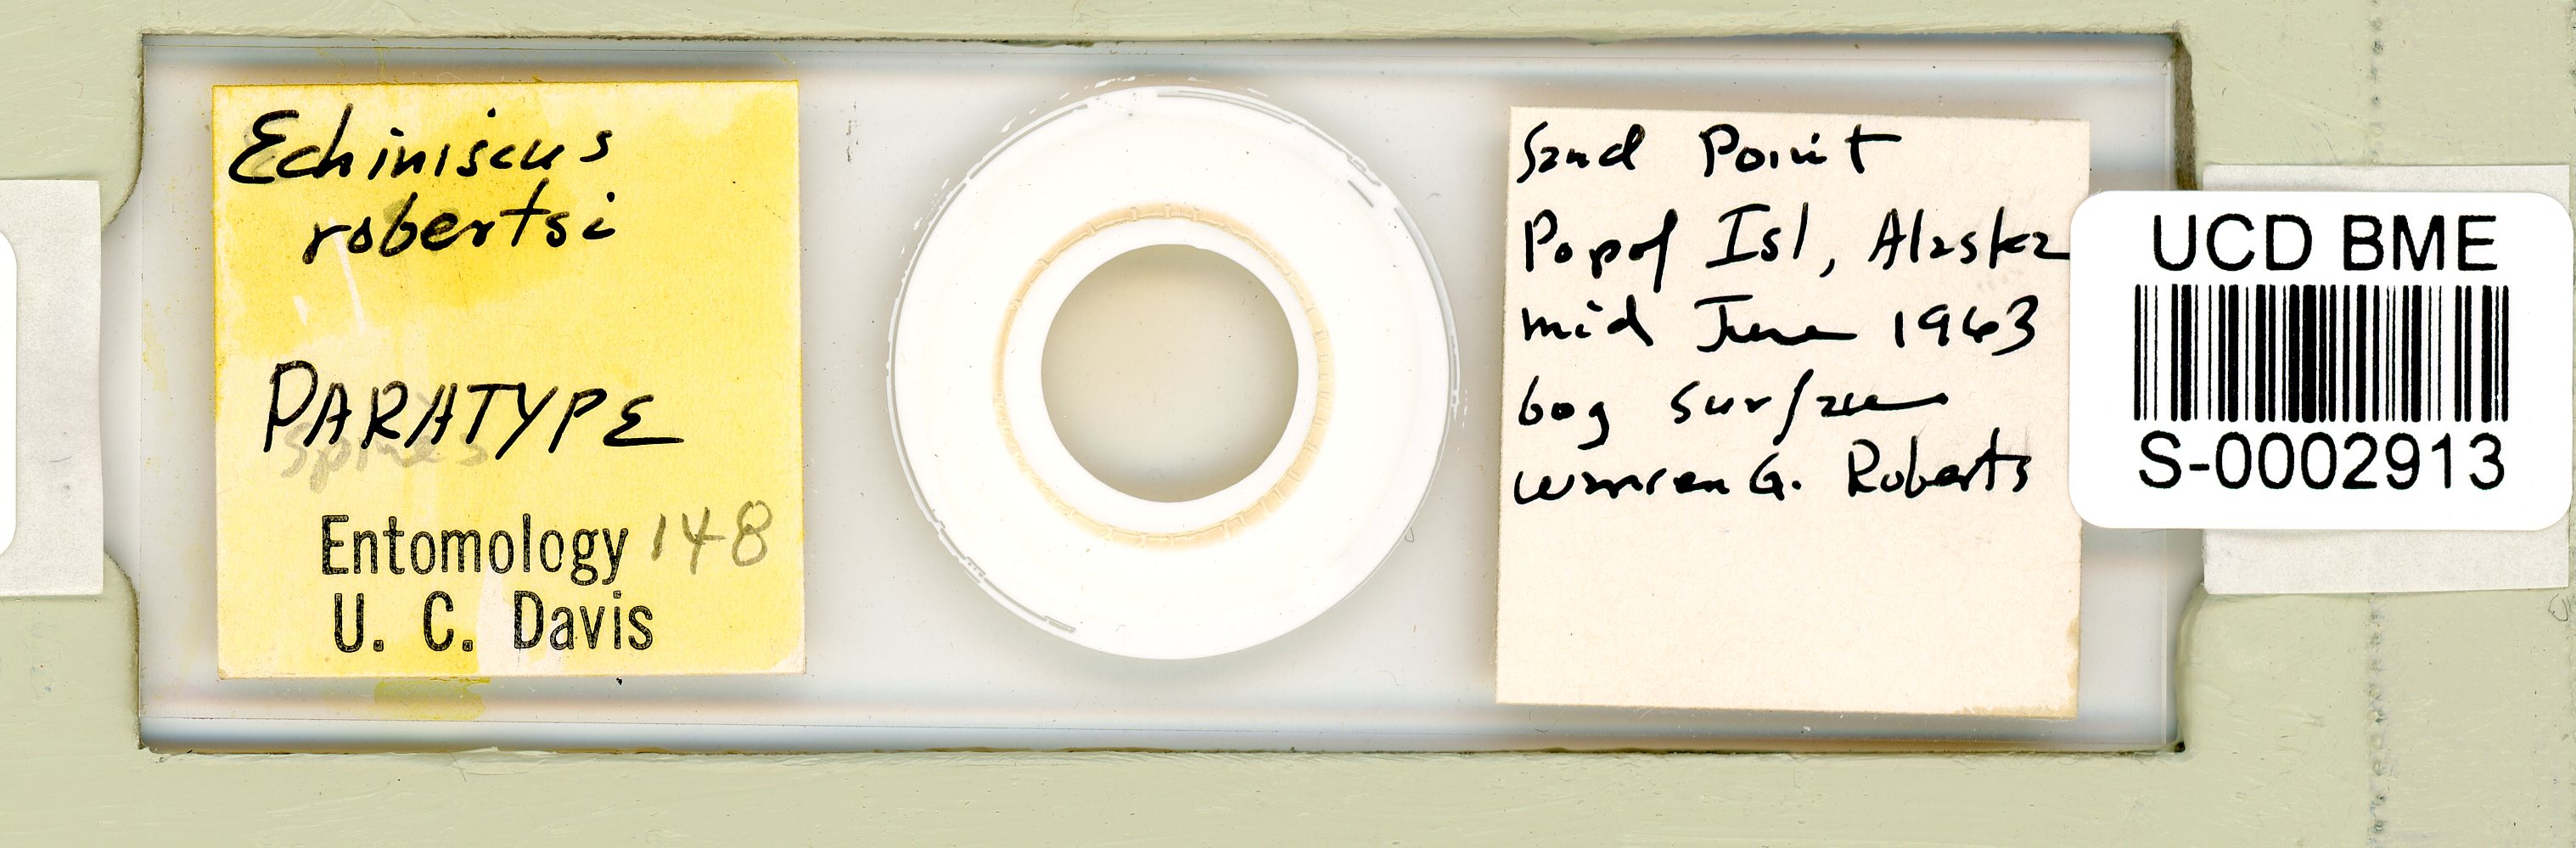 Echiniscus
robertsi
PARATYPE
spines
Entomology 148
U. C. Davis
Sand Point
Popof Isl, Alaska
mid June 1963
bog surface
Warren G. Roberts
UCD BME
S-0002913